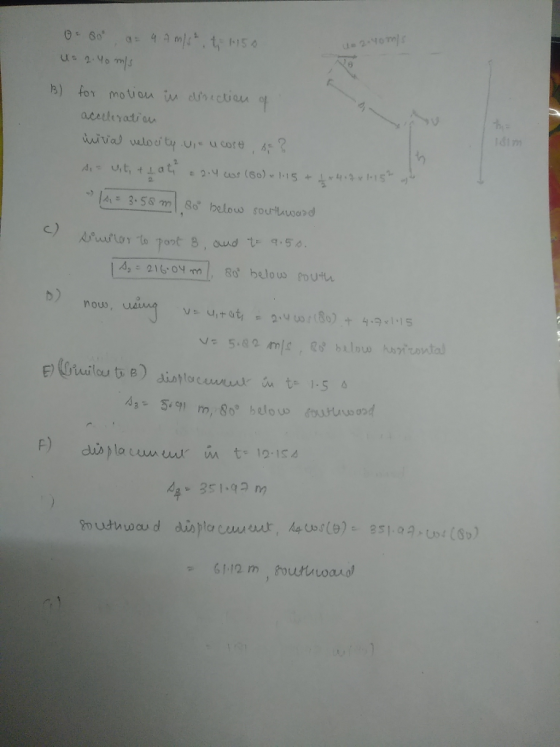 θ = 80°, a = 4.7 m/s², t₁ = 1.15 s
u = 2.40 m/s
u = 2.40 m/s
B) for motion in direction of
acceleration
initial velocity u₁ = u cosθ, s₁ = ?
s₁ = u₁t₁ + 1/2 at₁² = 2.4 cos(80) × 1.15 + 1/2 × 4.7 × 1.15²
→ s₁ = 3.58 m, 80° below southward
C) similar to part B, and t = 9.5 s.
s₂ = 216.04 m, 80° below south
D) now, using v = u₁ + at₁ = 2.4 cos(80) + 4.7 × 1.15
v = 5.82 m/s, 80° below horizontal
E) (similar to B) displacement in t = 1.5 s
s₃ = 5.91 m, 80° below southward
F) displacement in t = 12.15 s
s₄ = 351.97 m
southward displacement, s₄ cos(θ) = 351.97 × cos(80)
= 61.12 m, southward